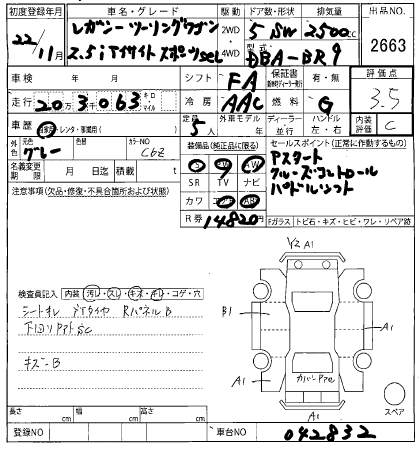 初度登録年月 車名・グレード 駆動 ドア数・形状 排気量 出品NO.
22年11月 レガシーツーリングワゴン 2WD 5 SW 2500cc 2663
2.5iアイサイトスポーツsel 4WD 型式 DBA-BR9
車検 年 月 シフト FA 保証書 有・無 評価点
走行 20万3千063 キロ マイル 冷房 AAC 燃料 G 3.5
車歴 自家用・レンタ・事業用( ) 定員 5人 外車モデル 年 ディーラー 並行 ハンドル 左・右 内装評価 C
外色 元色 グレー 色替 カラーNO C6Z 装備品(純正品に限る) セールスポイント(正常に作動するもの)
名義変更期限 月 日迄 積載 t S P AW アスタート
SR TV ナビ クルーズコントロール
注意事項(欠品・修復・不具合箇所および状態) カワ エアB AB パドルシフト
R券 14820円 Fガラス トビ石・キズ・ヒビ・ワレ・リペア跡
√2 A1
検査員記入 内装 汚レ・スレ・キズ・ギレ・コゲ・穴
RパネルB B1
下回り SC A1
キズ-B
A1 A1 スペア
長さ cm 幅 cm 高さ cm
登録NO 車台NO 042832